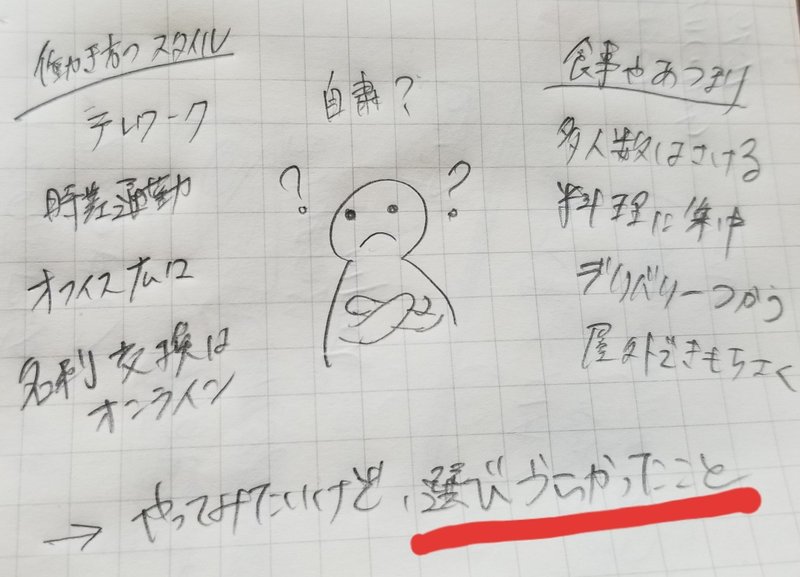 働き方のスタイル
テレワーク
時差通勤
オフィス広く
名刺交換は
オンライン
自粛?
? ?
食事やあつまり
多人数はさける
料理に集中
デリバリーつかう
屋外できもちよく
→ やってみたいけど、選びづらかったこと